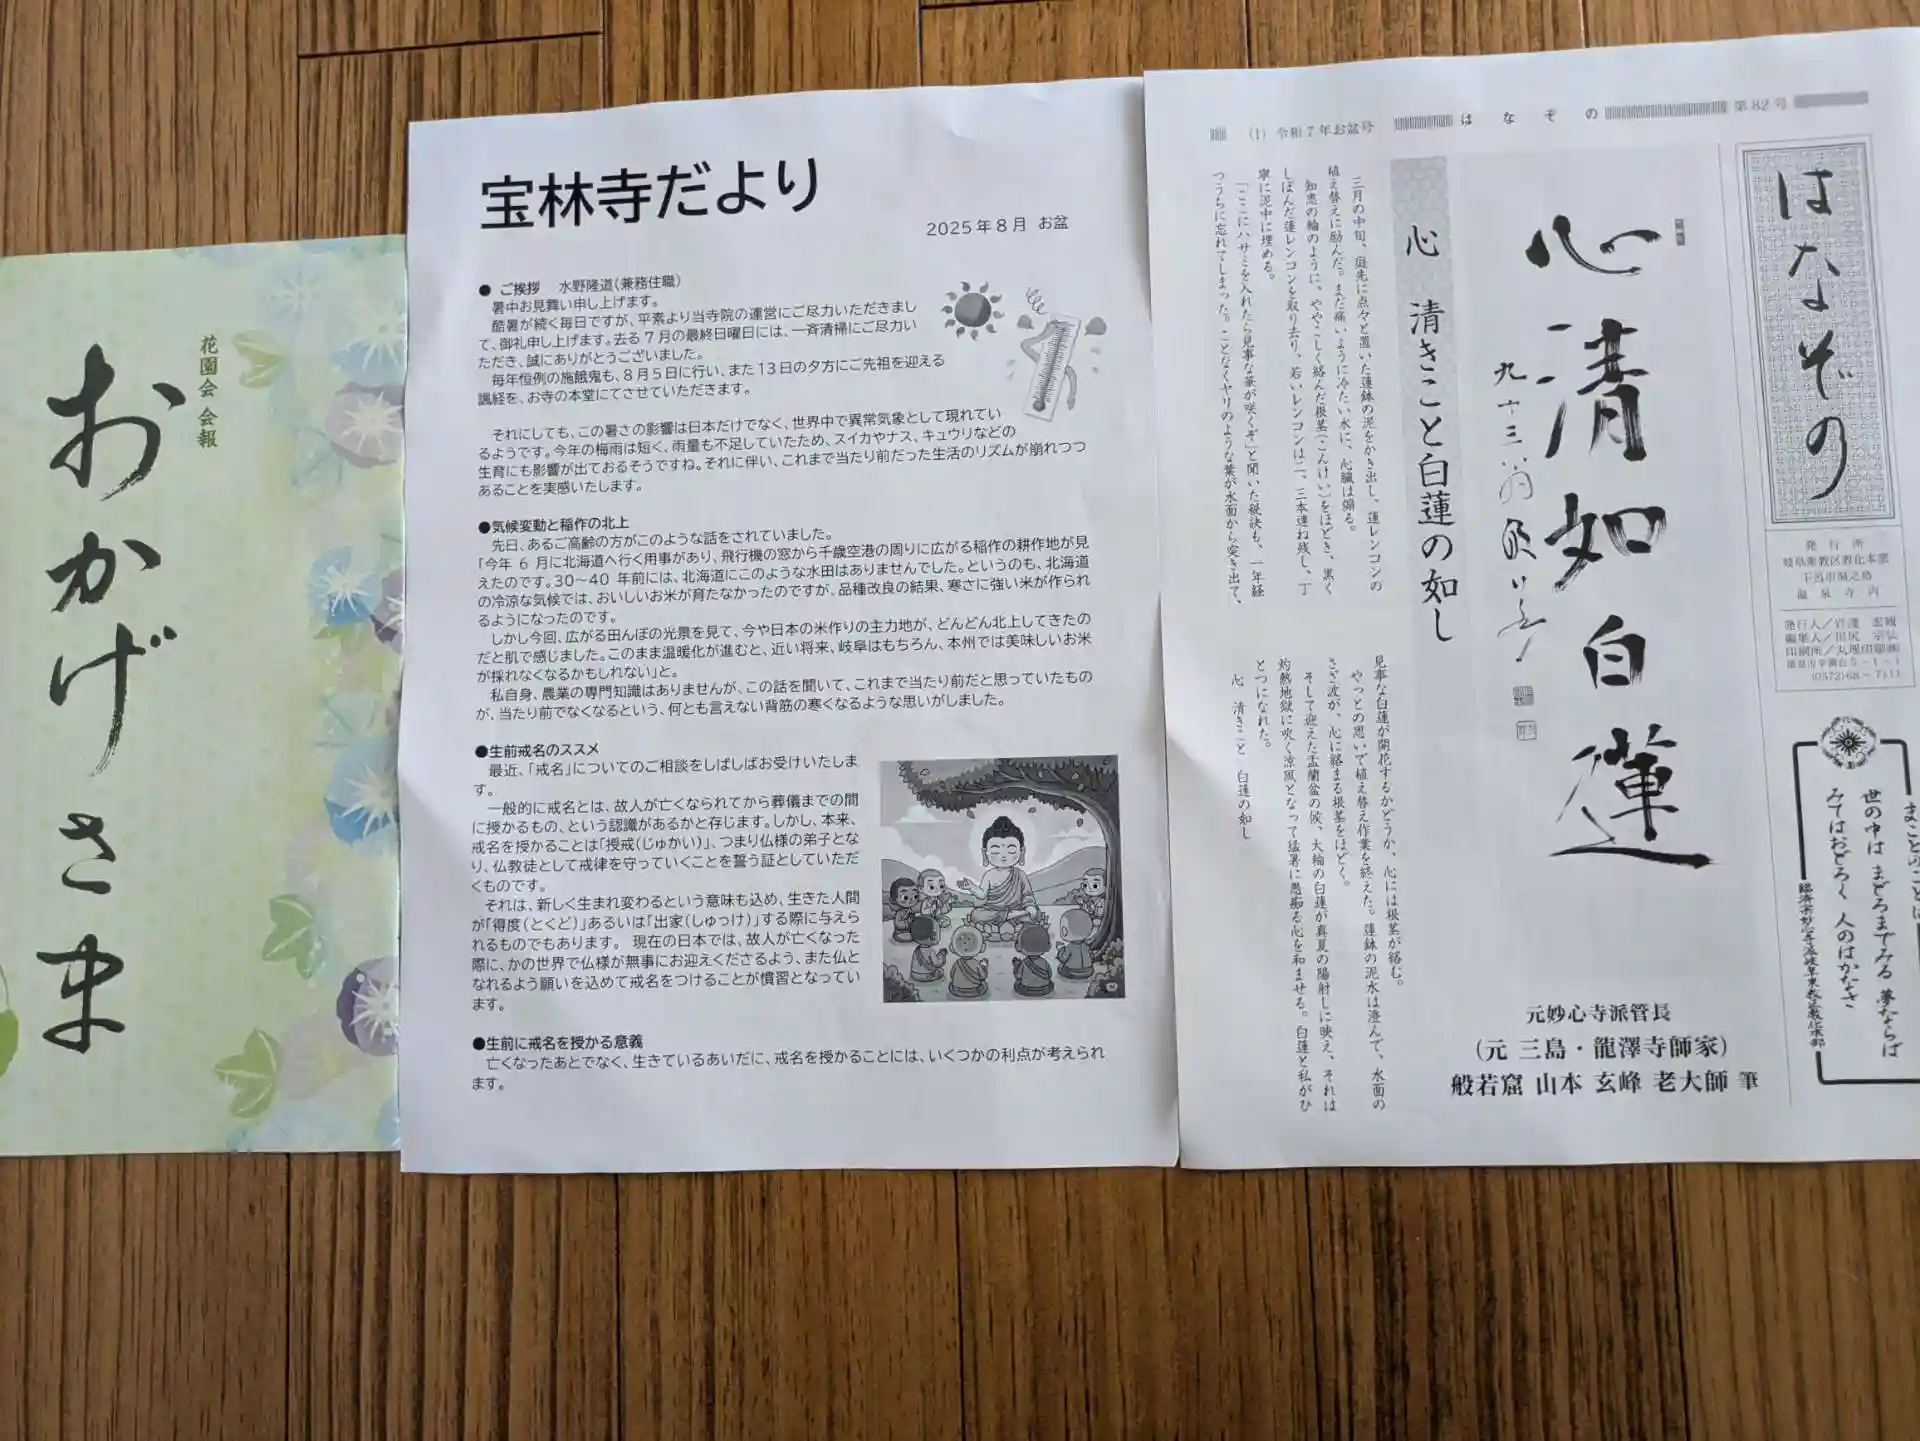 花園会 会報
おかげさま
宝林寺だより
2025年8月 お盆
● ご挨拶 水野隆道(兼務住職)
暑中お見舞い申し上げます。
酷暑が続く毎日ですが、平素より当寺院の運営にご尽力いただきまし
て、御礼申し上げます。去る7月の最終日曜日には、一斉清掃にご尽力い
ただき、誠にありがとうございました。
毎年恒例の施餓鬼も、8月5日に行い、また13日の夕方にご先祖を迎える
諷経を、お寺の本堂にてさせていただきます。
それにしても、この暑さの影響は日本だけでなく、世界中で異常気象として現れてい
るようです。今年の梅雨は短く、雨量も不足していたため、スイカやナス、キュウリなどの
生育にも影響が出ておるそうですね。それに伴い、これまで当たり前だった生活のリズムが崩れつつ
あることを実感いたします。
●気候変動と稲作の北上
先日、あるご高齢の方がこのような話をされていました。
「今年 6 月に北海道へ行く用事があり、飛行機の窓から千歳空港の周りに広がる稲作の耕作地が見
えたのです。30～40 年前には、北海道にこのような水田はありませんでした。というのも、北海道
の冷涼な気候では、おいしいお米が育たなかったのですが、品種改良の結果、寒さに強い米が作られ
るようになったのです。
しかし今回、広がる田んぼの光景を見て、今や日本の米作りの主力地が、どんどん北上してきたの
だと肌で感じました。このまま温暖化が進むと、近い将来、岐阜はもちろん、本州では美味しいお米
が採れなくなるかもしれない」と。
私自身、農業の専門知識はありませんが、この話を聞いて、これまで当たり前だと思っていたもの
が、当たり前でなくなるという、何とも言えない背筋の寒くなるような思いがしました。
●生前戒名のススメ
最近、「戒名」についてのご相談をしばしばお受けいたしま
す。
一般的に戒名とは、故人が亡くなられてから葬儀までの間
に授かるもの、という認識があるかと存じます。しかし、本来、
戒名を授かることは「授戒(じゅかい)」、つまり仏様の弟子とな
り、仏教徒として戒律を守っていくことを誓う証としていただ
くものです。
それは、新しく生まれ変わるという意味も込め、生きた人間
が「得度(とくど)」あるいは「出家(しゅっけ)」する際に与えら
れるものでもあります。 現在の日本では、故人が亡くなった
際に、かの世界で仏様が無事にお迎えくださるよう、また仏と
なれるよう願いを込めて戒名をつけることが慣習となってい
ます。
●生前に戒名を授かる意義
亡くなったあとでなく、生きているあいだに、戒名を授かることには、いくつかの利点が考えられ
ます。
(1) 令和7年お盆号
はなぞの
第82号
はなぞの
発行所
岐阜東教区教化本部
下呂市湯之島
温泉寺内
印刷所/丸理印刷㈱
(0572)68-7111
世の中は まどろまでみる 夢ならば
みてはおどろく 人のはかなさ
臨済宗妙心寺派岐阜東教区教化本部
心清如白蓮
九十三翁
元妙心寺派管長
(元 三島・龍澤寺師家)
般若窟 山本 玄峰 老大師 筆
心 清きこと白蓮の如し
三月の中旬、庭先に点々と置いた蓮鉢の泥をかき出し、蓮レンコンの
植え替えに励んだ。まだ痛いように冷たい水に、心臓は煽る。
知恵の輪のように、ややこしく絡んだ根茎(こんけい)をほどき、黒く
しぼんだ蓮レンコンを取り去り、若いレンコンは二、三本連ね残し、丁
寧に泥中に埋める。
「ここにハサミを入れたら見事な華が咲くぞ」と聞いた秘訣も、一年経
つうちに忘れてしまった。ことなくヤリのような葉が水面から突き出て、
見事な白蓮が開花するかどうか、心には根茎が絡む。
やっとの思いで植え替え作業を終えた。蓮鉢の泥水は澄んで、水面の
さざ波が、心に絡まる根茎をほどく。
そして迎えた盂蘭盆の候、大輪の白蓮が真夏の陽射しに映え、それは
灼熱地獄に吹く涼風となって猛暑に愚痴る心を和ませる。白蓮と私がひ
とつになれた。
心 清きこと 白蓮の如し